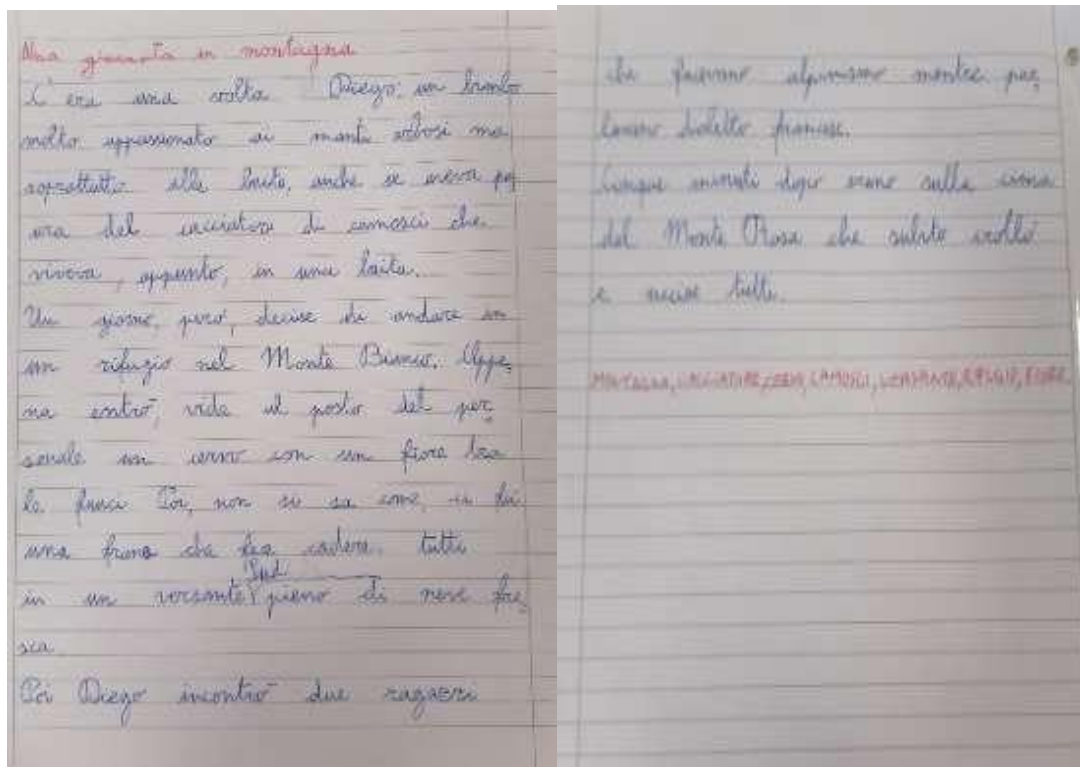 Una giornata in montagna
C'era una volta Diego: un bimbo
molto appassionato di monti
soprattutto alle baite, anche se aveva pa
ura del cacciatore di camosci che
viveva, appunto, in una baita.
Un giorno, però, decise di andare in
un rifugio nel Monte Bianco. Appe
na entrò, vide al posto del per
sonale un cervo con un fiore tra
le fauci Poi, non si sa come, ci fu
una frana che fece cadere tutti
in un versante Sud pieno di neve fre
sca
Poi Diego incontrò due ragazzi
che facevano alpinismo mentre par
lavano dialetto francese.
Cinque minuti dopo erano sulla cima
del Monte Rosa che subito crollò
e uccise tutti.
MONTAGNA, CACCIATORE, CERVO, CAMOSCI, VERSANTE, RIFUGIO, FIORE.